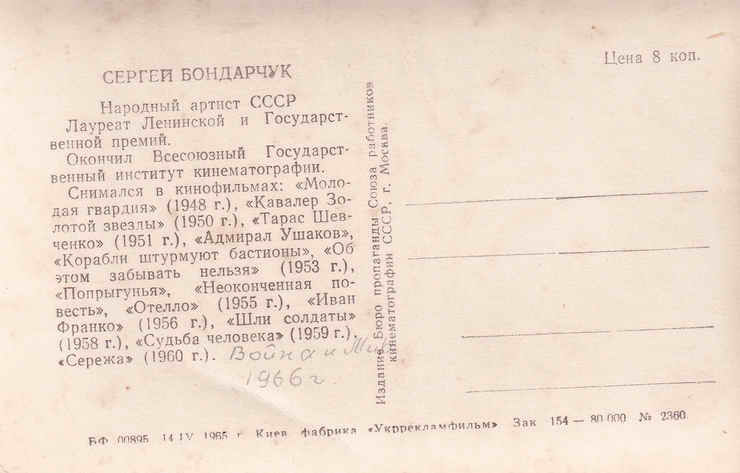 СЕРГЕЙ БОНДАРЧУК
Народный артист СССР
Лауреат Ленинской и Государст-
венной премий.
Окончил Всесоюзный Государст-
венный институт кинематографии.
Снимался в кинофильмах: «Моло-
дая гвардия» (1948 г.), «Кавалер Зо-
лотой звезды» (1950 г.), «Тарас Шев-
ченко» (1951 г.), «Адмирал Ушаков»,
«Корабли штурмуют бастионы», «Об
этом забывать нельзя» (1953 г.),
«Попрыгунья», «Неоконченная по-
весть», «Отелло» (1955 г.), «Иван
Франко» (1956 г.), «Шли солдаты»
(1958 г.), «Судьба человека» (1959 г.),
«Сережа» (1960 г.). Война и Мир
1966 г
Издание Бюро пропаганды Союза работников
кинематографии СССР, г. Москва.
Цена 8 коп.
БФ 00895 14 IV 1965 г Киев фабрика «Укррекламфильм» Зак 154 — 80 000 № 2360.